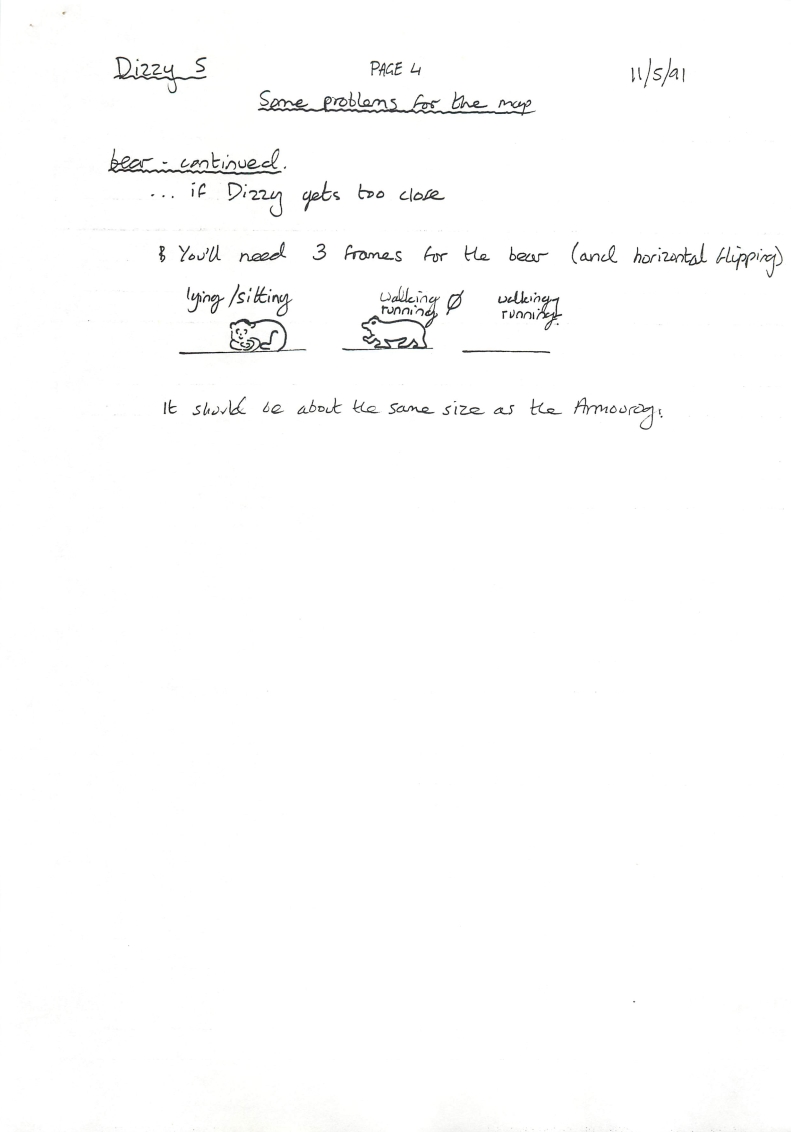 Dizzy 5 PAGE 4 11/5/91
Some problems for the map
bear - continued.
... if Dizzy gets too close
You'll need 3 frames for the bear (and horizontal flipping)
lying/sitting walking running Ø walking running
It should be about the same size as the Armourog.